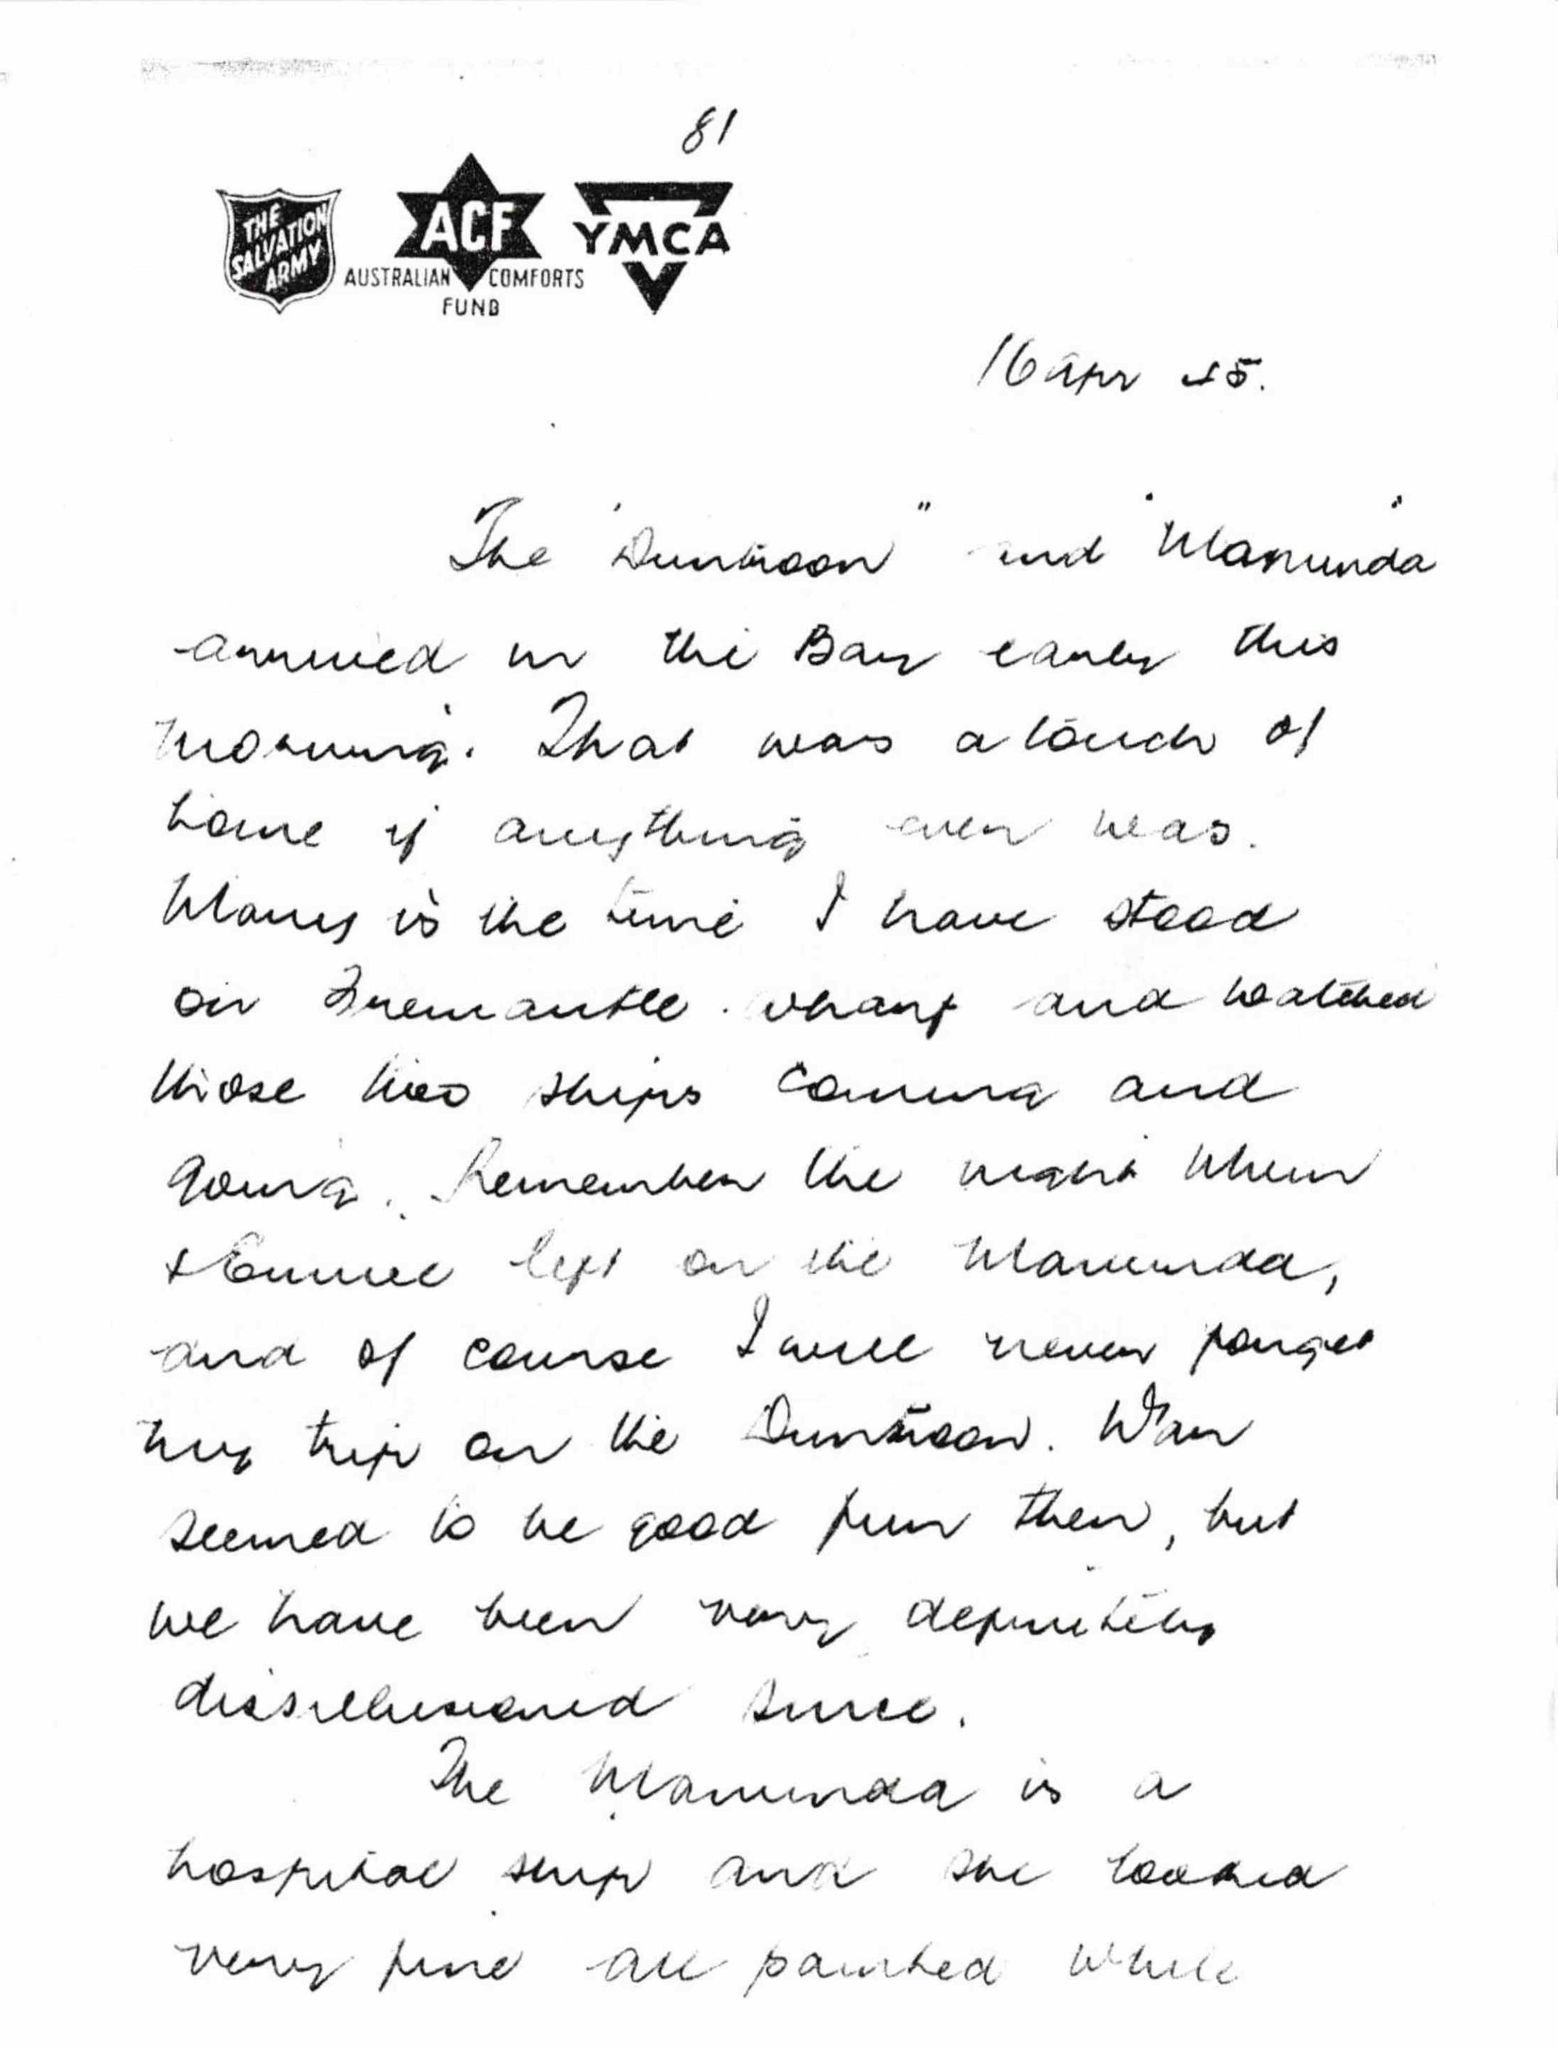 81
THE
SALVATION
ARMY
ACF
AUSTRALIAN COMFORTS
FUND
YMCA
16 Apr 45.
The "Duntroon" and "Manunda"
arrived in the Bay early this
morning. That was a touch of
home if anything ever was.
Many is the time I have stood
on Fremantle wharf and watched
those two ships coming and
going. Remember the night when
left on the Manunda,
and of course I will never forget
my trip on the Duntroon. War
seemed to be good fun then, but
we have been very definitely
dissillusioned since.
The Manunda is a
hospital ship and she looked
very fine all painted white